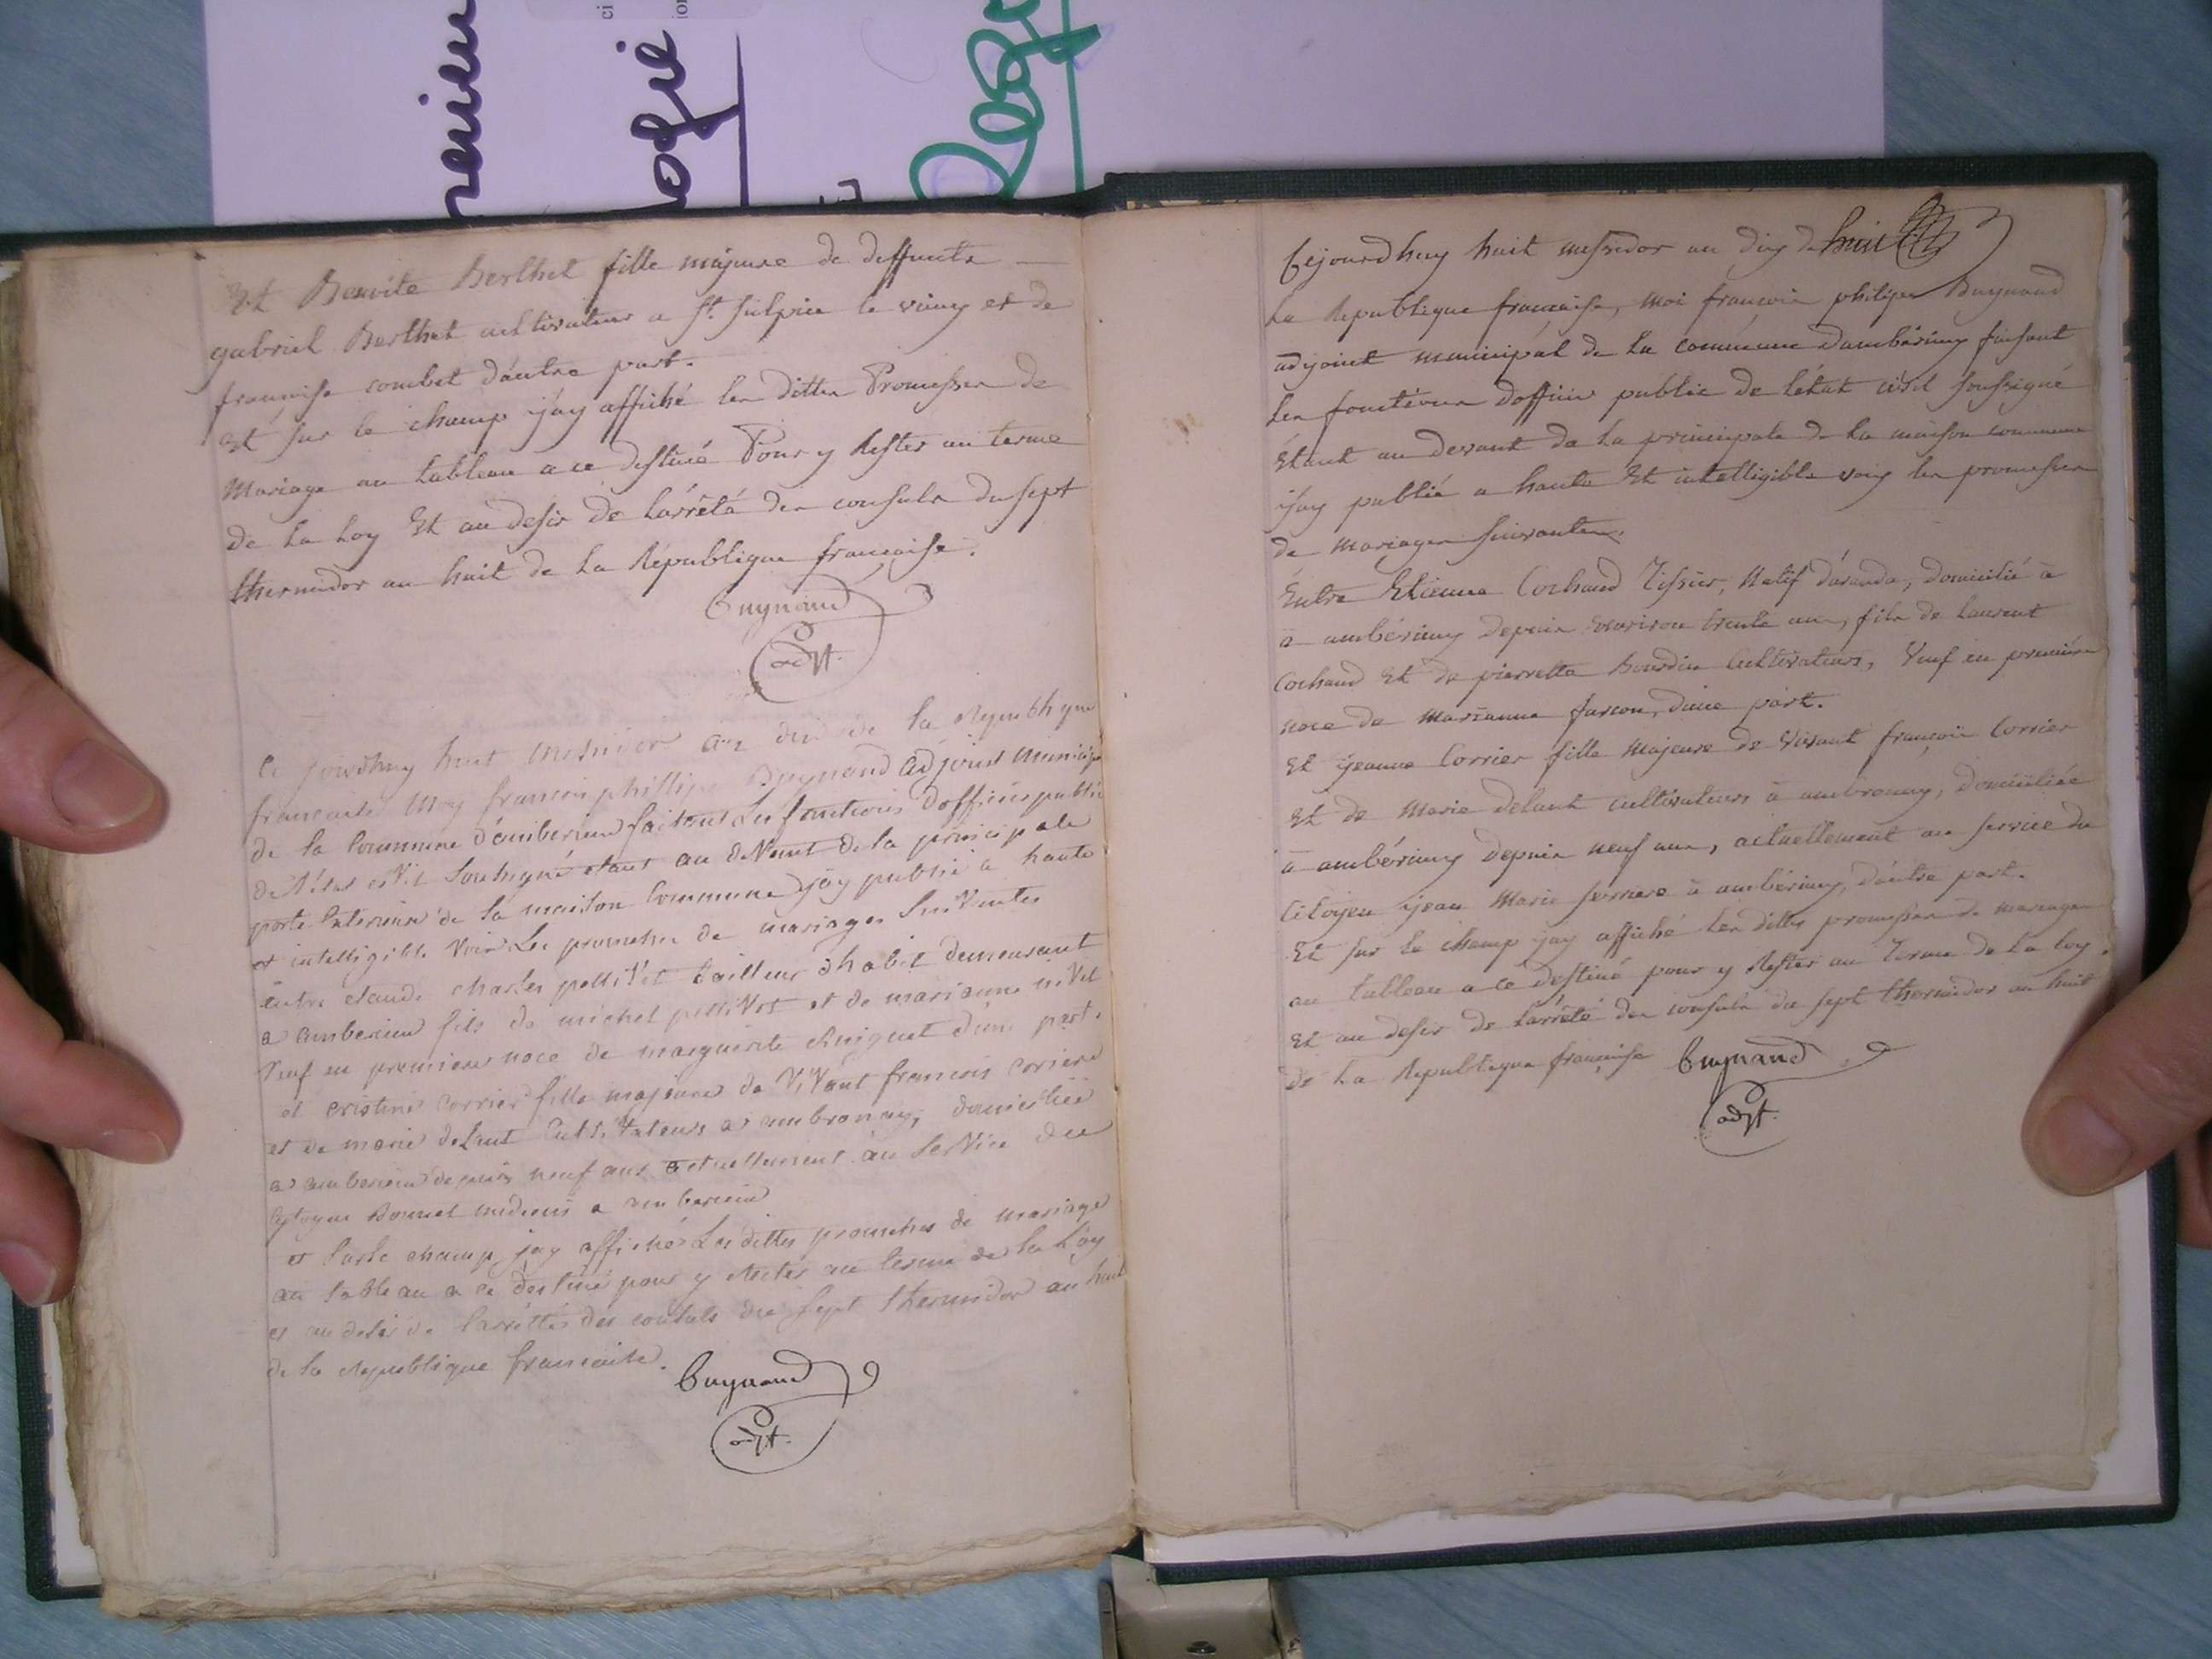 Et Benoite Berthet fille majeure de deffunts
gabriel Berthet cultivateur a St. Sulpice le vieux et de
françoise combet d'autre part.
Et sur le champ j'ay affiché les dittes Promesses de
Mariage au tableau a ce destiné Pour y Rester au terme
de La Loy Et au desir de L'arrêté des consuls du sept
thermidor an huit de La République française.
Buynand
adjt.
Ce jourdhuy huit messidor an dix de la Republique
francaise Moy francois phillipe Buynand adjoint Municipal
de la Commune d'amberieu faisant Les fonctions d'officier public
de l'état civil Soussigné etant au devant de la principale
porte de la maison Commune jay publié a haute
et intelligible voix Les promesses de mariages Suivantes
entre claude charles pettivet tailleur d'habit demeurant
a amberieu fils de michel pettivet et de marianne nivet
Veuf en premiere noce de marguerite d'une part.
et cristine Corrier fille majeure de Vivant francois Corrier
et de marie deLant Cultivateurs a ambronay, domiciliée
a amberieu depuis neuf ans actuellement au Service du
Citoyen Bonnet medecin a amberieu
et surle champ jay affiché Les dittes promesses de mariage
au tableau a ce destiné pour y Rester au terme de la Loy
et au desir de l'arrêtté des consuls du sept thermidor an huit
de la Republique francaise.
Buynand
adjt.
Cejourdhuy huit messidor an dix de
La Republique française, Moi françois philipe Buynand
adjoint municipal de La commune d'ambérieuy faisant
Les fonctions d'officier public de l'état civil soussigné
Etant au devant de La principale de La maison commune
j'ay publié a haute Et intelligible voix les promesses
de Mariages suivantes.
Entre Etienne Cochand Tissier, Natif d'aranda, domicilié à
a ambérieuy depuis environ trente ans, fils de Laurent
Cochand Et de pierrette bourdin Cultivateurs, Veuf en premiere
noce de Marianne d'une part.
Et jeanne Corrier fille Majeure de Vivant françois Corrier
Et de Marie delant cultivateurs à ambronay, domiciliée
à ambérieuy depuis neuf ans, actuellement au service du
Citoyen jean Marie ferriere à ambérieuy, d'autre part.
Et sur le champ jay affiché Les dittes promesses de mariages
au tableau a ce destiné pour y Rester au Terme de La loy.
Et au desir de L'arrêté des consuls du sept thermidor an huit
de La Republique française Buynand
adjt.